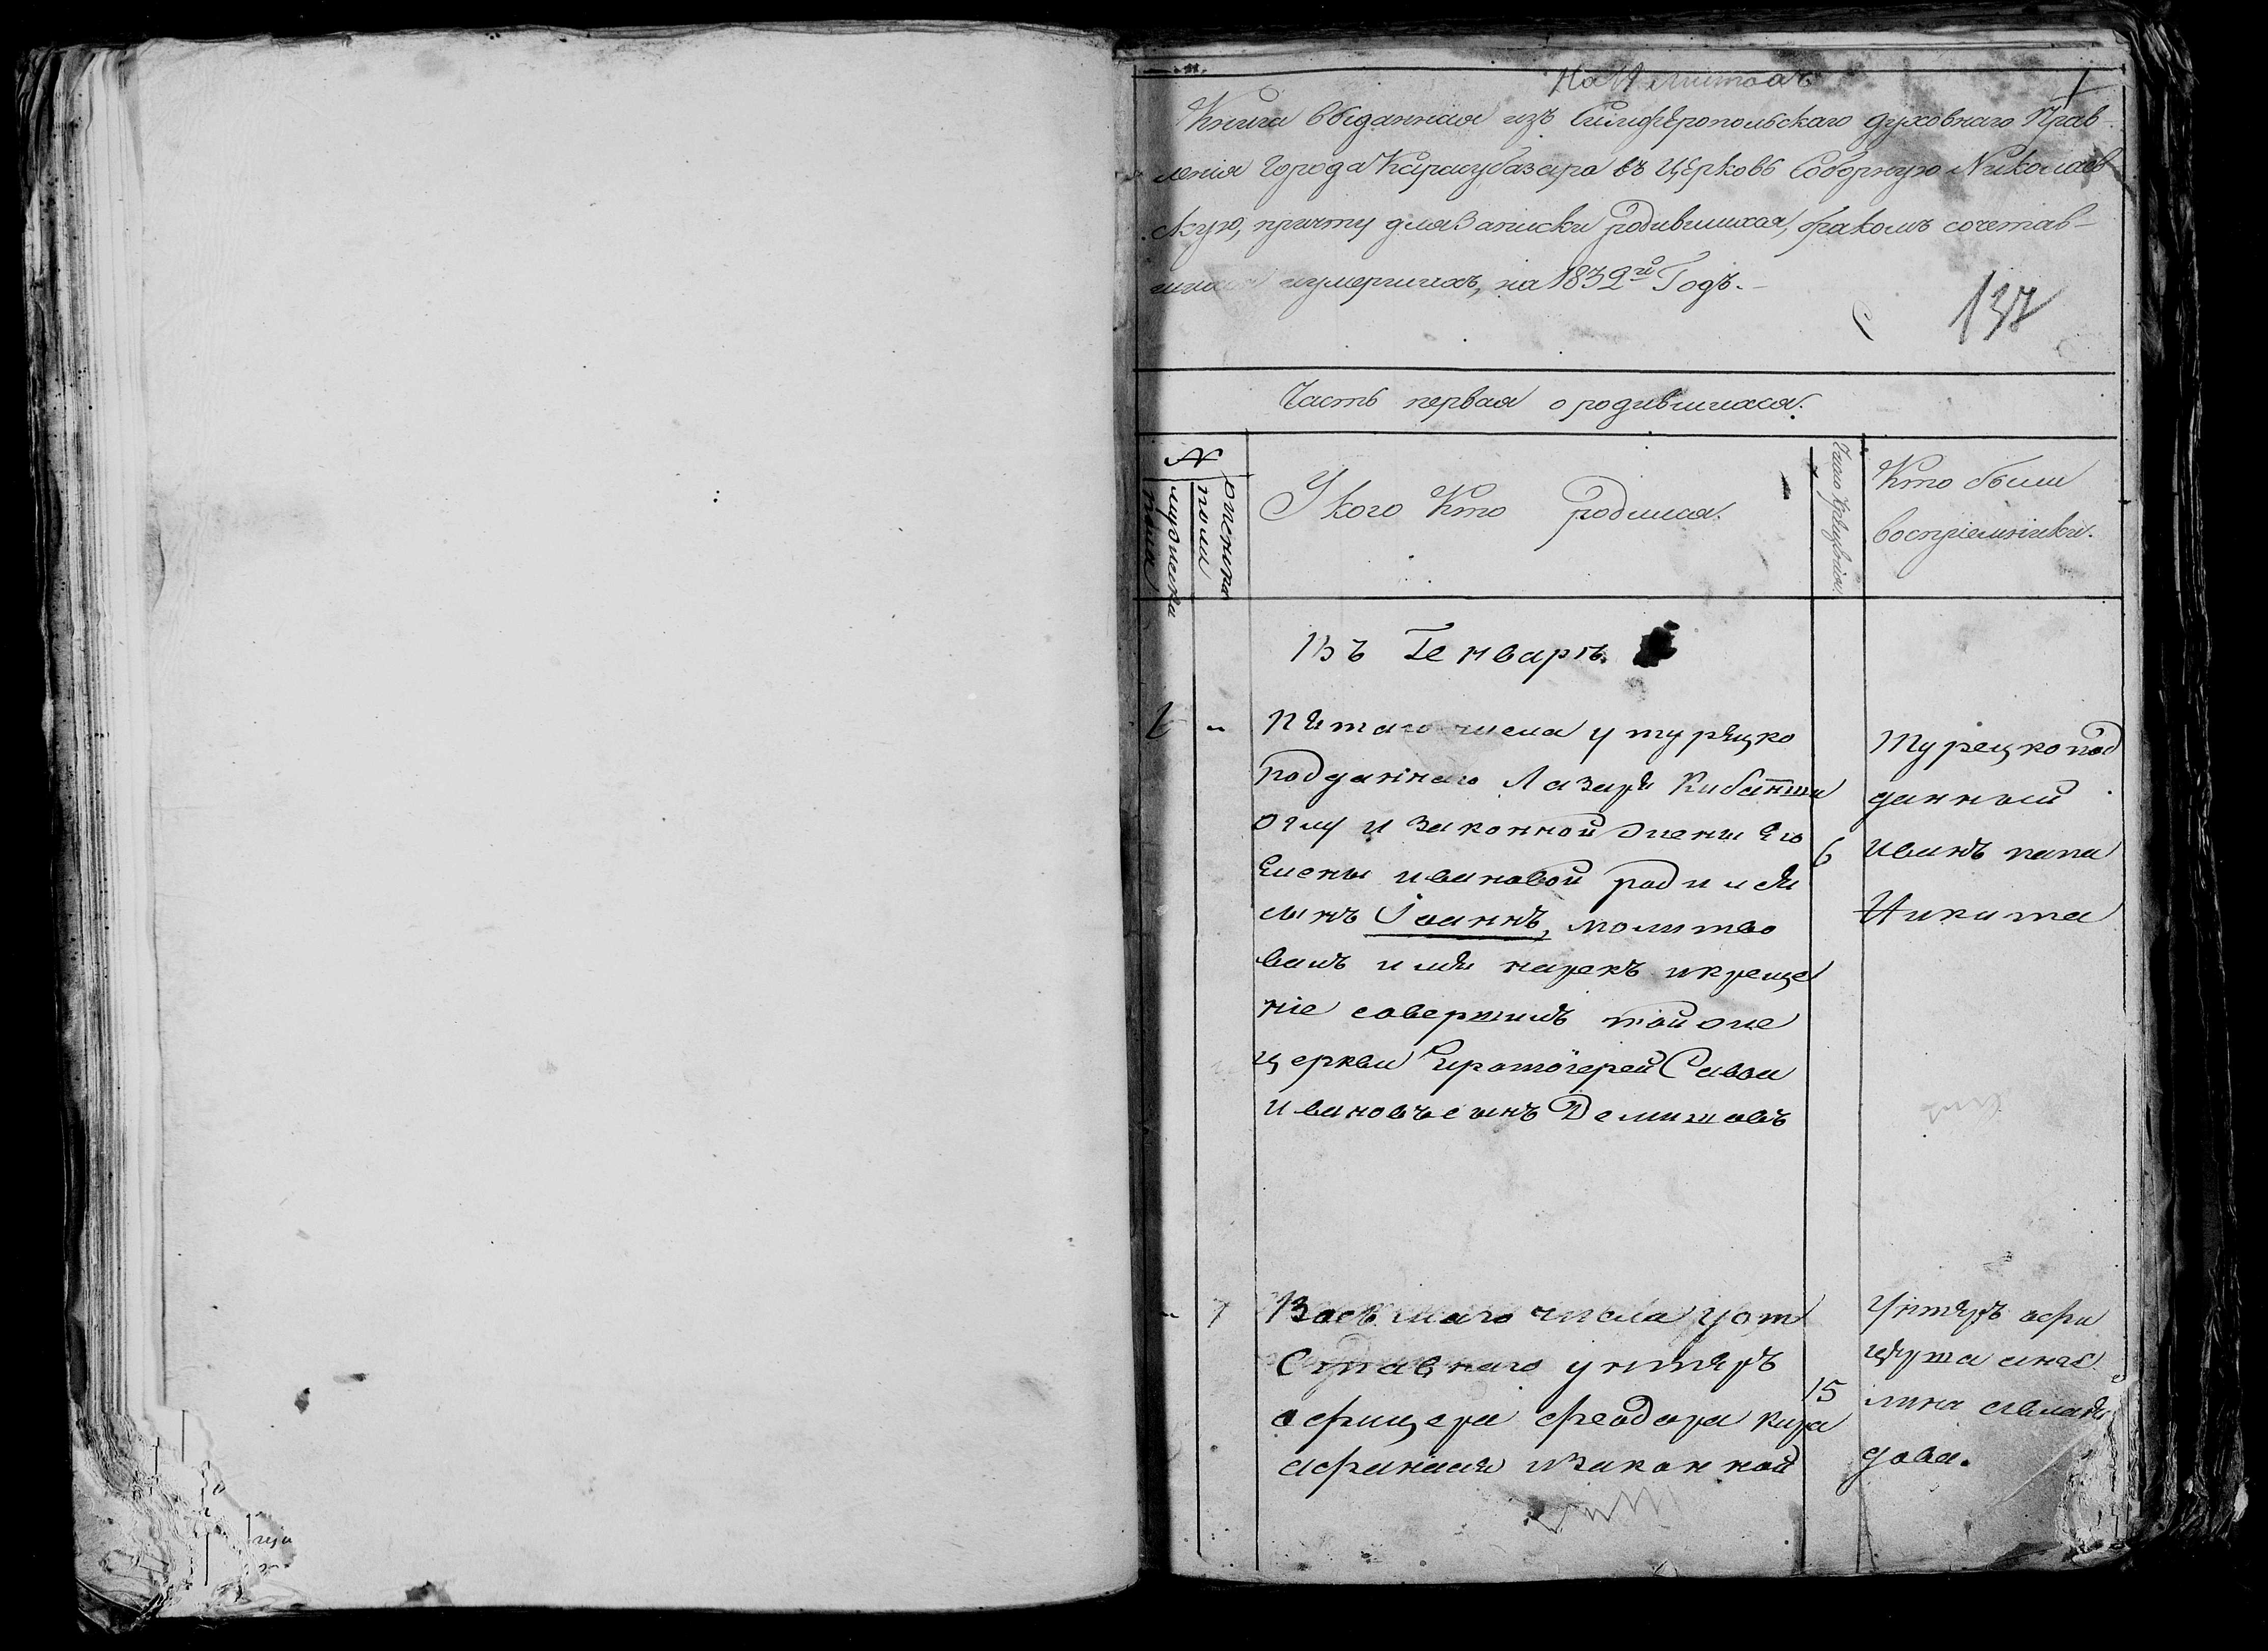 1
Книга выданная изъ Симферопольскаго духовнаго Прав
ленія Города Карасубазара въ Церковь Соборную Николаев
скую, причту для записки родившихся, бракомъ сочетав-
шихся и умершихъ, на 1832й Годъ.-
137
Часть первая о родившихся.
№
мужеска пола
женска полы
У кого Кто родился.
Число крещенія
Кто были
воспріемники.
Въ Генваръ.
1
Пятаго числа у турецко
подданнаго Лазаря
оглу и законной жены Его
Елены ивановой родился
сынъ Іоаннъ, молитво
валъ и имя нарекъ и креще
ніе совершилъ той же
церкви Протоіерей Савва
ивановъ сынъ Демишовъ
6
Турецкопод
данный
иванъ папа
Никита
1
Восьмаго числа у от
ставнаго унтеръ
офицера феодора кира
афанасія и законной
15
Унтеръ офи
цѣрша
дова.